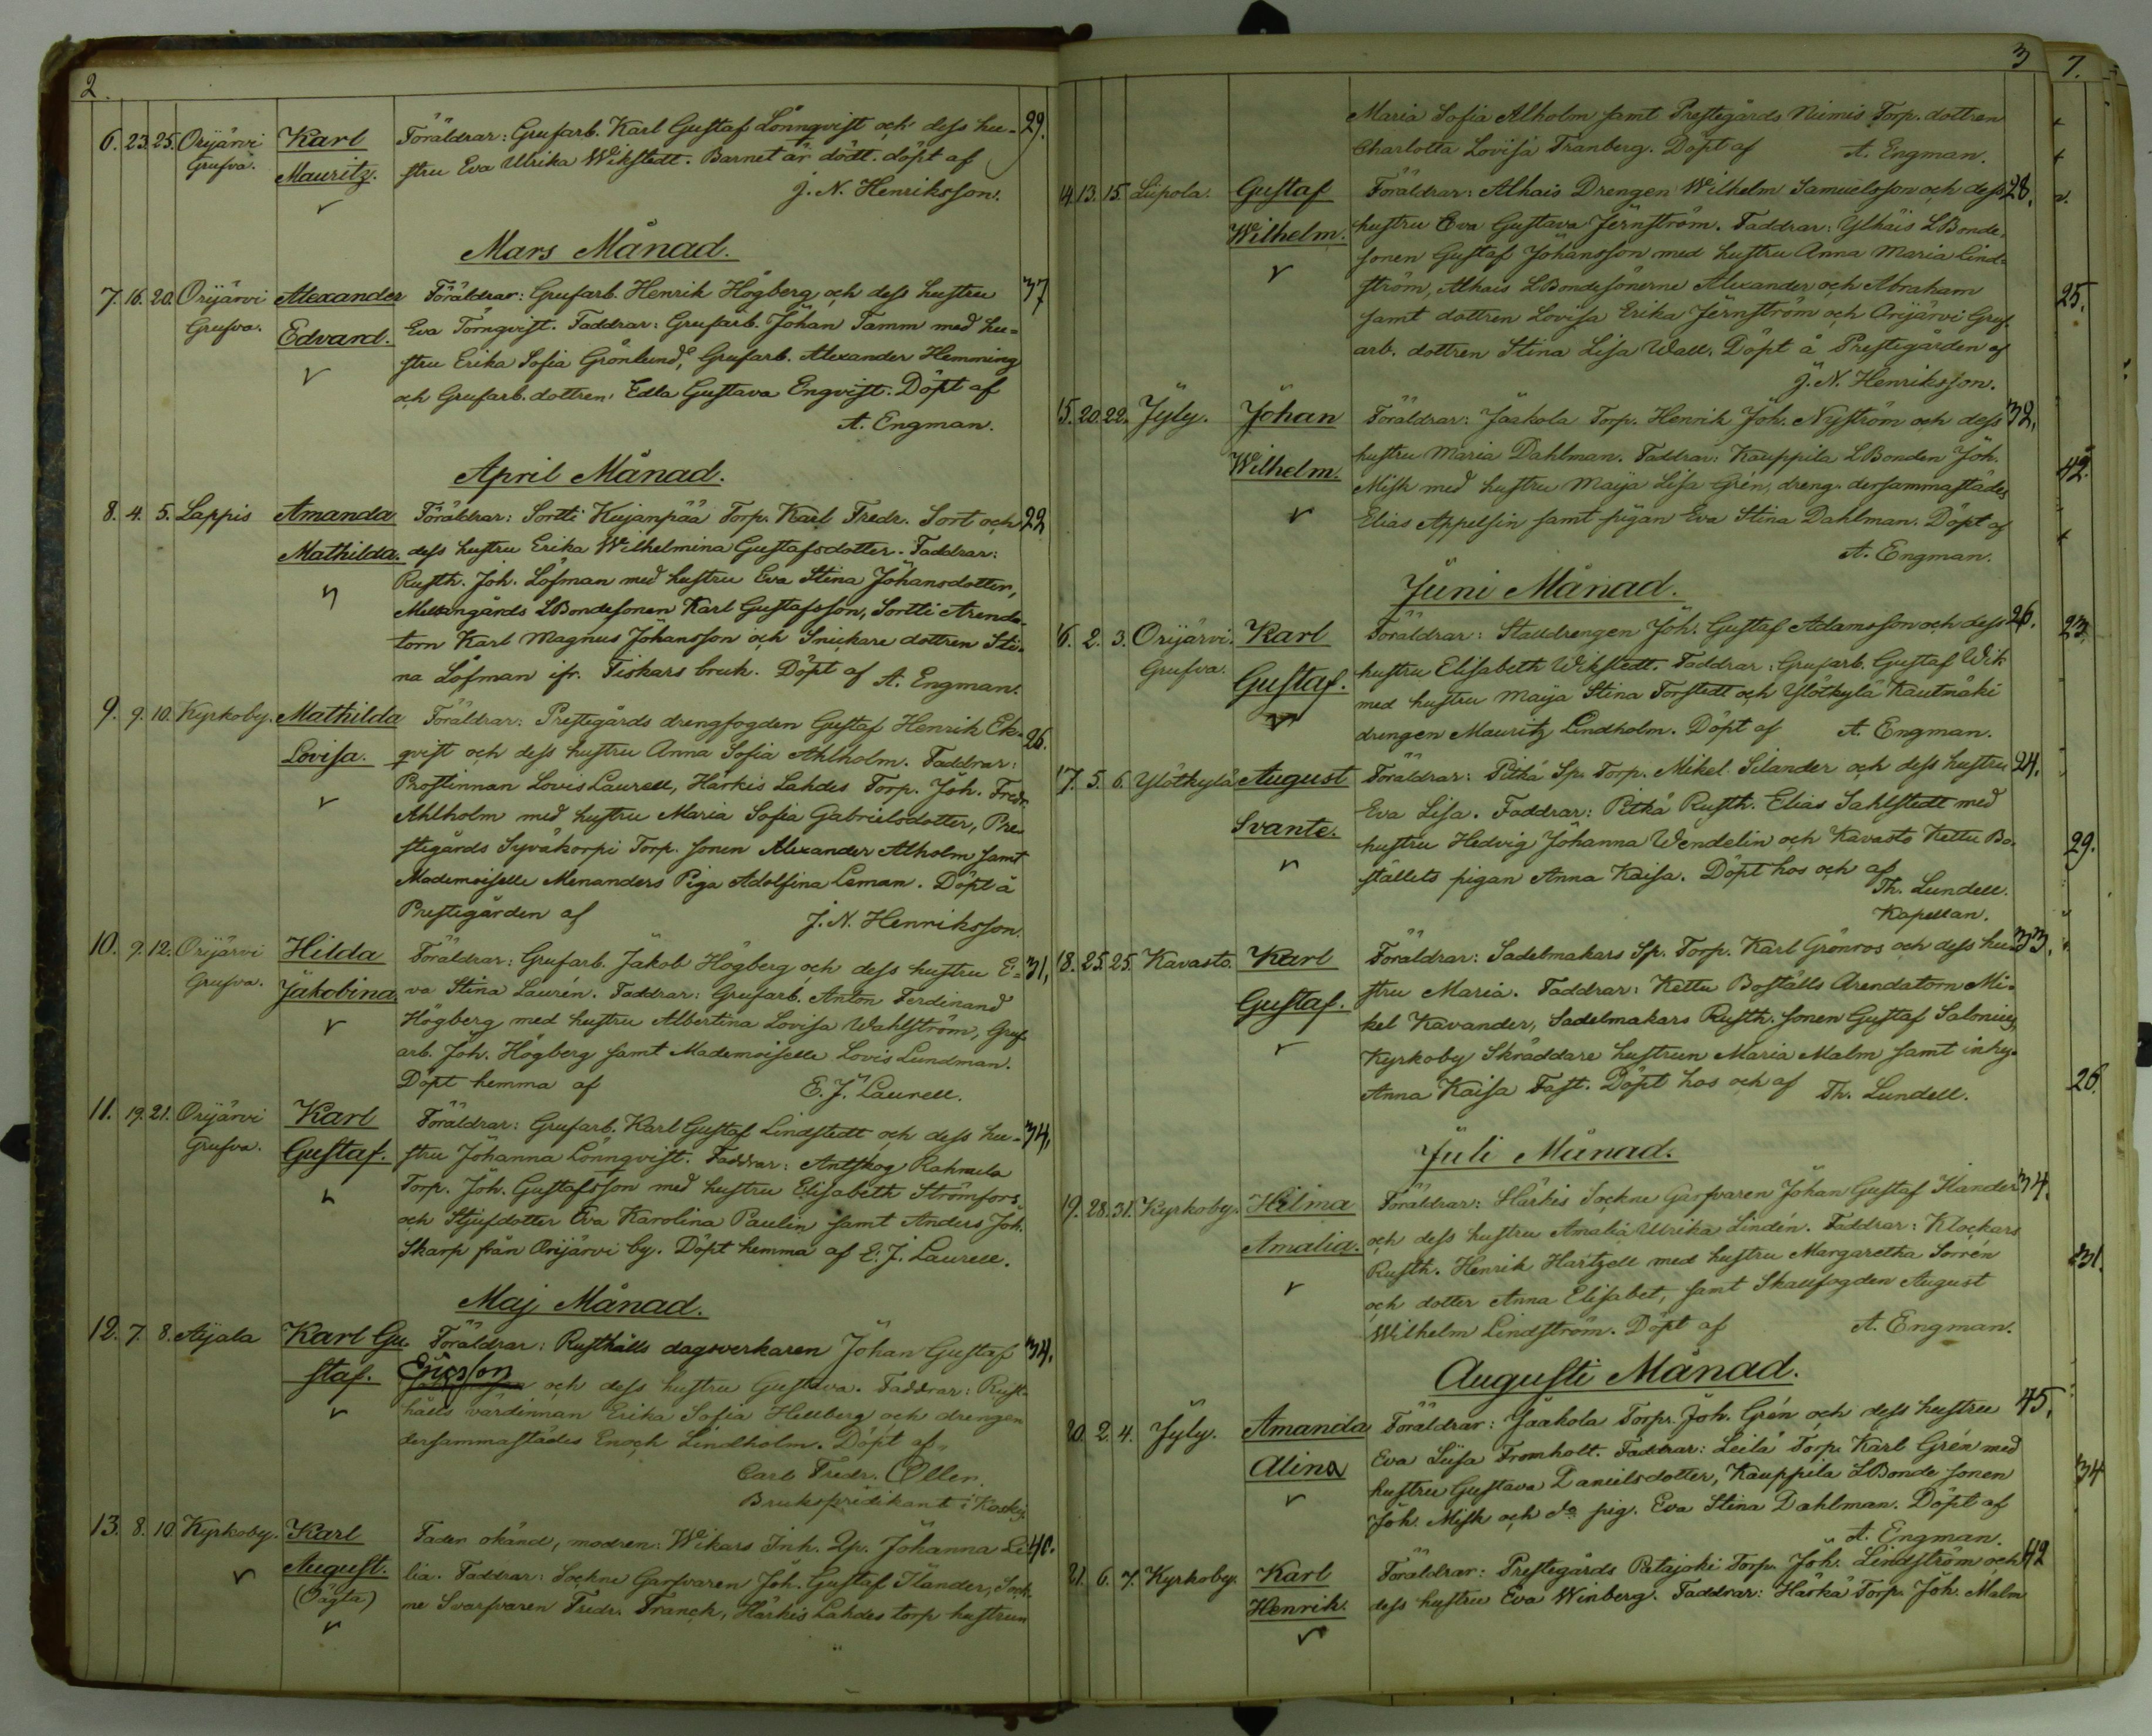 2.
6. 23. 25. Orijärvi Karl Föräldrar: Grufarb. Karl Gustaf Lönnqvist och dess hu- 29.
Grufva. Mauritz. stru Eva Ulrika Wikstedt. Barnet är dödt. döpt af
J. N. Henriksson.
Mars Månad.
7. 16. 20. Orijärvi Alexander Föräldrar: Grufarb. Henrik Högberg och dess hustru 37
Grufva. Edvard. Eva Törnqvist. Faddrar: Grufarb. Johan Tamm med hu=
stru Erika Sofia Grönlund, Grufarb. Alexander Hemming
och Grufarb. dottren Edla Gustava Engvist. Döpt af
A. Engman.
April Månad.
8. 4. 5. Lappis Amanda Föräldrar: Sortti Kujanpää Torp. Karl Fredr. Sort och 22
Mathilda. dess hustru Erika Wilhelmina Gustafsdotter. Faddrar:
Rusth. Joh. Löfman med hustru Eva Stina Johansdotter,
Mellangårds LBondesonen Karl Gustafsson, Sortti Arenda-
torn Karl Magnus Johansson och Snickare dottren Sti-
na Löfman ifr. Fiskars bruk. Döpt af A. Engman.
9. 9. 10. Kyrkoby. Mathilda Föräldrar: Prestegårds drengfogden Gustaf Henrik Ek- 26.
Lovisa. qvist och dess hustru Anna Sofia Ahlholm. Faddrar:
Prostinnan Lovis Laurell, Härkis Lahdes Torp. Joh. Fredr.
Ahlholm med hustru Maria Sofia Gabrielsdotter, Pre-
stegårds Syväkorpi Torp. sonen Alexander Alholm samt
Mademoiselle Menanders Piga Adolfina Leman. Döpt å
Prestegården af J. N. Henriksson.
10. 9. 12. Orijärvi Hilda Föräldrar: Grufarb. Jakob Högberg och dess hustru E= 31,
Grufva. Jakobina. va Stina Laurén. Faddrar: Grufarb. Anton Ferdinand
Högberg med hustru Albertina Lovisa Wahlström, Gruf-
arb. Joh. Högberg samt Mademoiselle Lovis Lundman.
Döpt hemma af E. J. Laurell.
11. 19. 21. Orijärvi Karl Föräldrar: Grufarb. Karl Gustaf Lindstedt och dess hu- 34,
Grufva. Gustaf. stru Johanna Lönnqvist. Faddrar: Antskog Rahmela
Torp. Joh. Gustafsson med hustru Elisabeth Strömfors
och Stjufdotter Eva Karolina Paulin samt Anders Joh.
Skarp från Orijärvi by. Döpt hemma af E. J. Laurell.
Maj Månad.
12. 7. 8. Aijala Karl Gu- Föräldrar: Rusthålls dagsverkaren Johan Gustaf 34.
staf. Ericsson och dess hustru Gustava. Faddrar: Rust-
hålls värdinnan Erika Sofia Hellberg och drengen
dersammastädes Enoch Lindholm. Döpt af
Carl Fredr. Ollen.
Brukspredikant i Koski.
13. 8. 10. Kyrkoby. Karl Fader okänd, modren: Wikars Inh. Qp. Johanna Li 40.
August. lia. Faddrar: Sockne Garfvaren Joh. Gustaf Ilander, Sock-
(Oägta) ne Svarfvaren Fredr. Franck, Härkis Lahdes torp hustrun
3
Maria Sofia Alholm samt Prestegårds Nimis Torp. dottren
Charlotta Lovisa Tranberg. Döpt af A. Engman.
14. 13. 15. Liipola. Gustaf Föräldrar: Alhais Drengen Wilhelm Samuelsson och dess 28.
Wilhelm. hustru Eva Gustava Jernström. Faddrar: Ylhäis LBonde-
sonen Gustaf Johansson med hustru Anna Maria Lind-
ström, Alhais LBondesönerne Alexander och Abraham
samt dottren Lovisa Erika Jernström och Orijärvi Gruf-
arb. dottren Stina Lisa Wall. Döpt å Prestegården af
J. N. Henriksson.
15. 20. 22. Jyly. Johan Föräldrar: Jaakola Torp. Henrik Joh. Nyström och dess 32.
Wilhelm. hustru Maria Dahlman. Faddrar: Kauppila LBonden Joh.
Misk med hustru Maija Lisa Grén, dreng. dersammastädes
Elias Appelsin samt pigan Eva Stina Dahlman. Döpt af
A. Engman.
Juni Månad.
16. 2. 3. Orijärvi. Karl Föräldrar: Stalldrengen Joh. Gustaf Adamsson och dess 26.
Grufva. Gustaf. hustru Elisabeth Wikstedt. Faddrar: Grufarb. Gustaf Wik
med hustru Maija Stina Forstedt och Ylötkylä Kautmäki
drengen Mauritz Lindholm. Döpt af A. Engman.
17. 5. 6. Ylötkylä August Föräldrar: Pitkä Sp. Torp. Mikel Silander och dess hustru 24.
Svante. Eva Lisa. Faddrar: Pitkä Rusth. Elias Sahlstedt med
hustru Hedvig Johanna Wendelin och Kavasto Kettu Bo-
ställets pigan Anna Kaisa. Döpt hos och af
Th. Lundell.
Kapellan.
18. 25. 25. Kavasto. Karl Föräldrar: Sadelmakars Sp. Torp. Karl Grönros och dess hu- 33.
Gustaf. stru Maria. Faddrar: Kettu Boställs Arendatorn Mi-
kel Kavander, Sadelmakars Rusth. sonen Gustaf Salonius,
Kyrkoby Skräddare hustrun Maria Malm samt inhy-
Anna Kaisa Fast. Döpt hos och af Th. Lundell.
Juli Månad.
19. 28. 31. Kyrkoby. Hilma Föräldrar: Härkis Sockne Garfvaren Johan Gustaf Ilander 34.
Amalia. och dess hustru Amalia Ulrika Lindén. Faddrar: Klockars
Rusth. Henrik Hartzell med hustru Margaretha Sorrén
och dotter Anna Elisabet, samt Skallfogden August
Wilhelm Lindström. Döpt af A. Engman.
Augusti Månad.
20. 2. 4. Jyly. Amanda Föräldrar: Jaakola Torpr. Joh. Grén och dess hustru 45.
Alina Eva Liisa Fromholt. Faddrar: Leilä Torp. Karl Grén med
hustru Gustava Danielsdotter, Kauppila LBonde sonen
Joh. Misk och do pig. Eva Stina Dahlman. Döpt af
A. Engman.
21. 6. 7. Kyrkoby. Karl Föräldrar: Prestegårds Patajoki Torp. Joh. Lindström och 42
Henrik. dess hustru Eva Winberg. Faddrar: Härkä Torp. Joh. Malm
7.
25.
42.
23.
29.
26.
31.
34